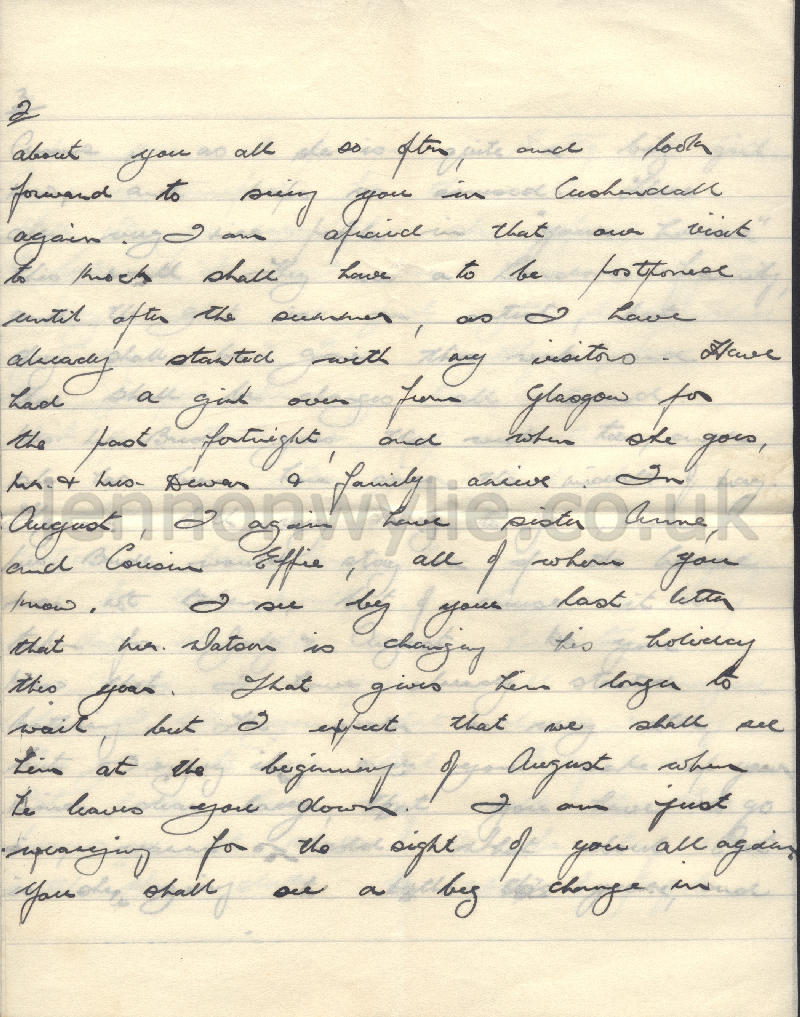 2
about you all so often, and look
forward to seeing you in Cushendall
again. I am afraid that our visit
to Knock shall have to be postponed
until after the summer, as I have
already started with my visitors. Have
had a girl over from Glasgow for
the past fortnight, and when she goes,
Mr. & Mrs. Dewar & family arrive. In
August, I again have sister Anne,
and Cousin Effie, all of whom you
know. I see by your last letter
that Mr. Watson is changing his holiday
this year. That gives him longer to
wait, but I expect that we shall see
him at the beginning of August when
he leaves you down. I am just
wearying for the sight of you all again
You shall see a big change in
lennonwylie.co.uk